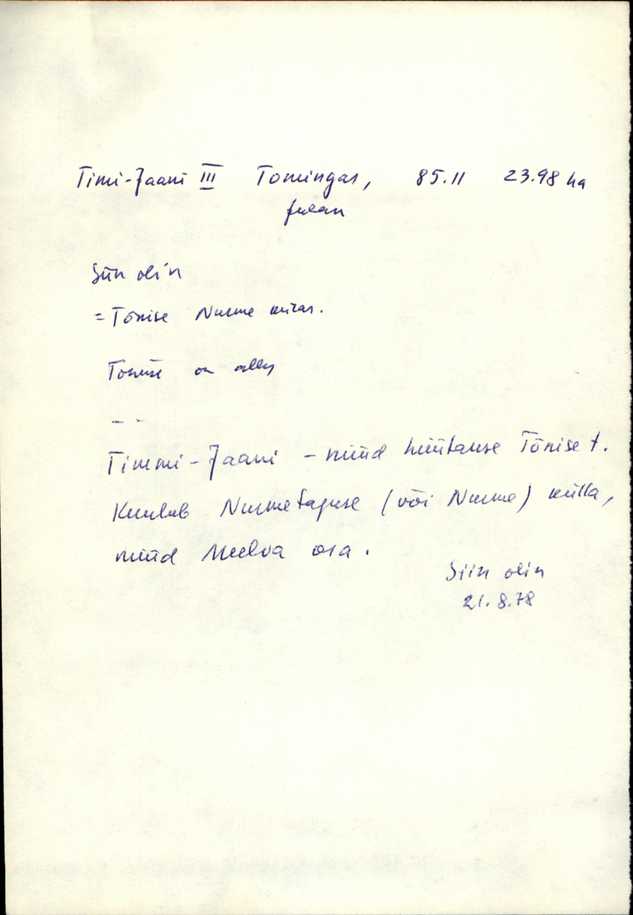 Timi-Jaani III Tomingas, 85.11 23.98 ha
Siin olin
= Tõnise Nurme külas.
Tõnise on alles
Timmi-Jaani - nüüd hüütakse Tõnise t.
Kuulub Nurmetaguse (või Nurme) külla,
nüüd Meelva osa.
Siin olin
21.8.78